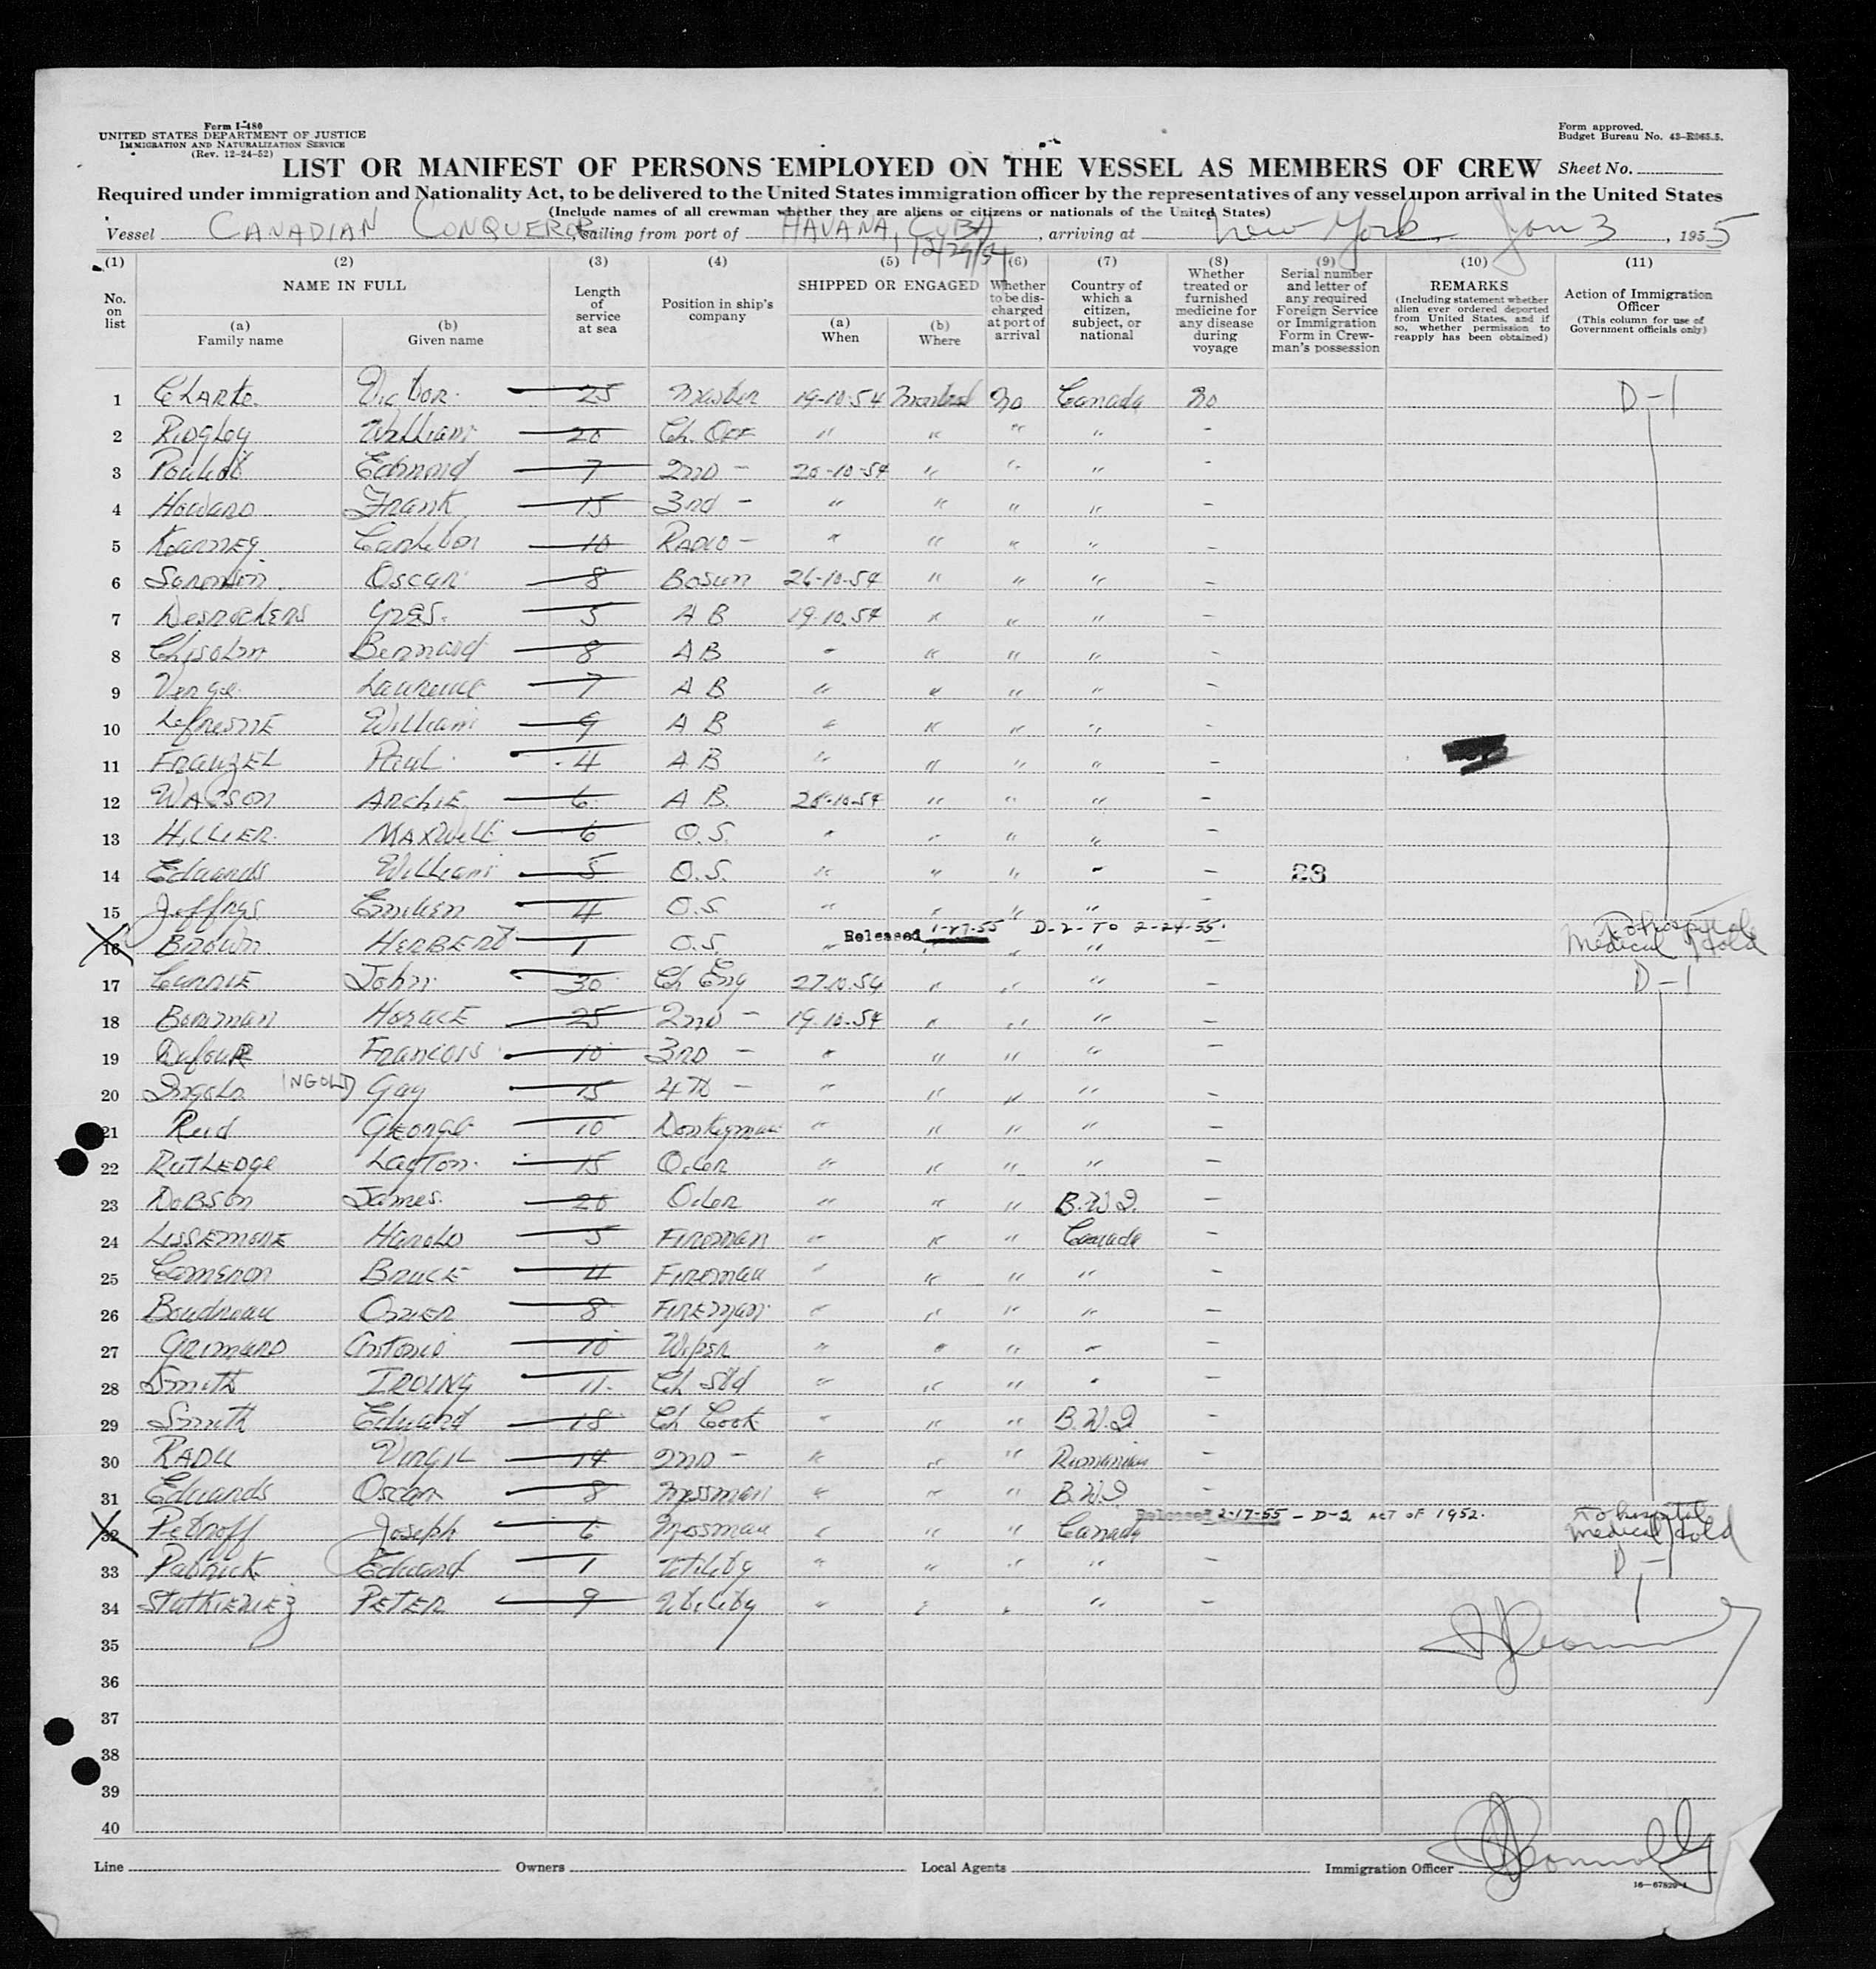 Form I-480
UNITED STATES DEPARTMENT OF JUSTICE
IMMIGRATION AND NATURALIZATION SERVICE
(Rev. 12-24-52)
Form approved.
Budget Bureau No.
LIST OR MANIFEST OF PERSONS EMPLOYED ON THE VESSEL AS MEMBERS OF CREW Sheet No.
Required under immigration and Nationality Act, to be delivered to the United States immigration officer by the representatives of any vessel upon arrival in the United States
(Include names of all crewman whether they are aliens or citizens or nationals of the United States)
Vessel CANADIAN CONQUEROR, sailing from port of HAVANA, CUBA, arriving at New York, Jan 3, 1955
12/29/54
(1) No. on list
(2) NAME IN FULL (a) Family name (b) Given name
(3) Length of service at sea
(4) Position in ship's company
(5) SHIPPED OR ENGAGED (a) When (b) Where
(6) Whether to be discharged at port of arrival
(7) Country of which a citizen, subject, or national
(8) Whether treated or furnished medicine for any disease during voyage
(9) Serial number and letter of any required Foreign Service or Immigration Form in Crewman's possession
(10) REMARKS (Including statement whether alien ever ordered deported from United States, and if so, whether permission to reapply has been obtained)
(11) Action of Immigration Officer (This column for use of Government officials only)
1 CLARKE. Victor. 25 Master 19-10-54 Montreal No Canada No D-1
2 Ridgley William 20 Ch. Off " " " " -
3 Pouliot Edmond 7 2ND - 20-10-54 " " " -
4 Howard Frank 15 3rd - " " " " -
5 Kearney 10 RADIO - " " " " -
6 Oscar 8 Bosun 26-10-54 " " " -
7 Desrochers Yves. 5 A B 19.10.54 " " " -
8 Chisolm Bernard 8 A B " " " " -
9 Verge Laurence 7 A B " " " " -
10 Lefresne William 9 A B " " " " -
11 FRANZEL Paul 4 A.B " " " " -
12 WATSON ARCHIE 6 A B. 28-10-54 " " " -
13 HILLIER. MAXWELL 6 O.S. " " " " -
14 Edwards William 5 O.S. " " " " - 23
15 Jeffreys Emilien 4 O.S. " " " " -
16 BROWN HERBERT 1 O.S. " Released 1-27-55 D-2-TO 2-24-55. " " - To hospital Medical Hold
17 CURRIE John 30 Ch Eng 27.10.54 " " " - D-1
18 Bowman HORACE 25 2nd - 19.10.54 " " " -
19 DufouR Francois 10 3RD - " " " " -
20 Ingold INGOLD Guy 15 4Th - " " " " -
21 Reid GEORGE 10 Donkeyman " " " " -
22 RUTLEDGE Layton. 15 Oiler " " " " -
23 DOBSON James. 20 Oiler " " " B.W.I. -
24 LISSEMORE Harold 5 FIREMAN " " " Canada -
25 Cameron BRUCE 4 Fireman " " " " -
26 Boudreau 8 FIREMAN " " " " -
27 GRIMARD Antonio 10 Wiper " " " " -
28 Smith IRVING 11. Ch Std " " " " -
29 Smith Edward 18 Ch Cook " " " B.W.I -
30 RADU VIRGIL 14 2ND - " " " Rumanian -
31 Edwards Oscar 8 Messman " " " B.W.I -
32 Petroff Joseph 6 Messman " " " Canada Released 2-17-55 - D-2 ACT OF 1952. To hospital Medical Hold
33 Patrick Edward 1 Utility " " " - D-1
34 PETER 9 Utility " " " " -
35
36
37
38
39
40
Line Owners Local Agents Immigration Officer